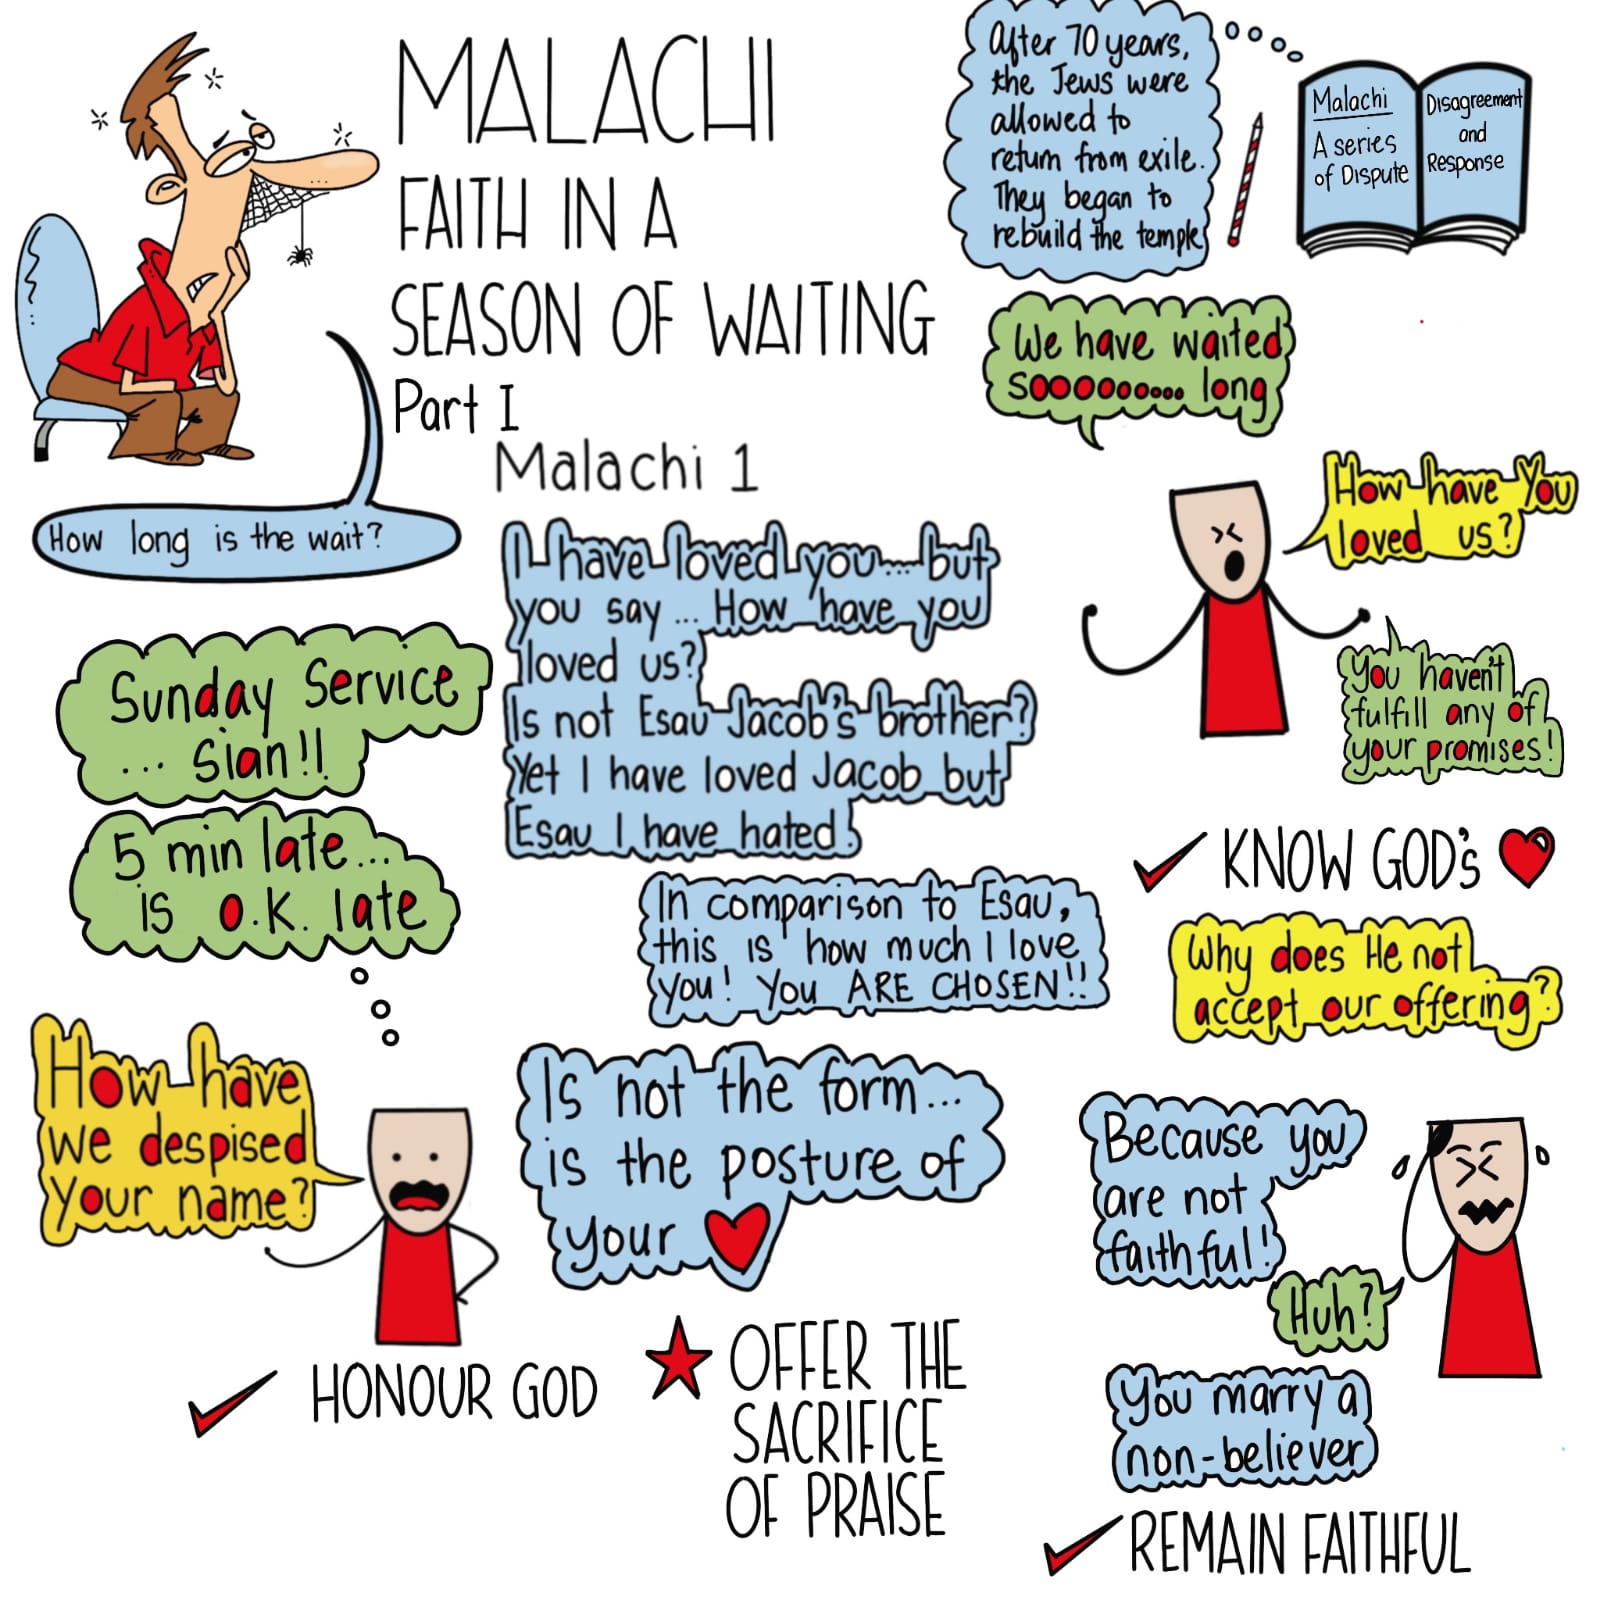 MALACHI
FAITH IN A
SEASON OF WAITING
Part I
How long is the wait?
After 70 years,
the Jews were
allowed to
return from exile.
They began to
rebuild the temple
Malachi
A series
of Dispute
Disagreement
and
Response
We have waited
sooooooooo long
How have You
loved us?
You haven't
fulfill any of
your promises!
KNOW GOD's
Malachi 1
I have loved you... but
you say... How have you
loved us?
Is not Esau Jacob's brother?
Yet I have loved Jacob but
Esau I have hated.
In comparison to Esau,
this is how much I love
you! You ARE CHOSEN!!
Sunday Service
... Sian!!
5 min late...
is o.k. late
How have
we despised
your name?
HONOUR GOD
Is not the form...
is the posture of
your
OFFER THE
SACRIFICE
OF PRAISE
Why does He not
accept our offering?
Because you
are not
faithful!
Huh?
You marry a
non-believer
REMAIN FAITHFUL